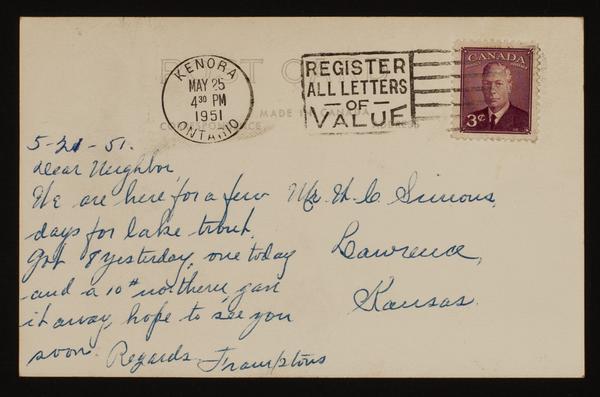 POST C
KENORA
MAY 25
4 30 PM
1951
ONTARIO
REGISTER
ALL LETTERS
- OF -
VALUE
CANADA
3¢
MADE IN CANADA
CORRESPONDENCE
ADDRESS
5-21-51.
Dear Neighbor,
We are here for a few
days for lake trout.
Got 8 yesterday, one today
and a 10# northern, gave
it away, hope to see you
soon. Regards Framptons
Mr. W. C. Simons,
Lawrence,
Kansas.